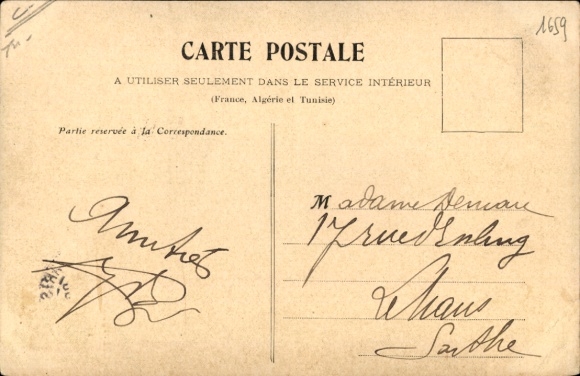 1659
CARTE POSTALE
A UTILISER SEULEMENT DANS LE SERVICE INTÉRIEUR
(France, Algérie et Tunisie)
Partie reservée à la Correspondance.
Amitiés
Madame
17 rue
Le Mans
Sarthe